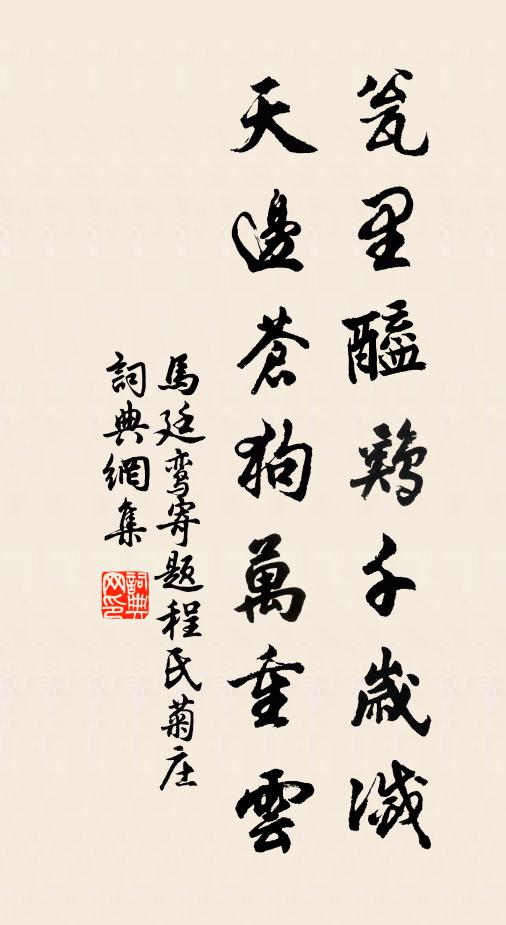 瓮里醯鷄千歲滅
天邊蒼狗萬重雲
馬廷鸾寄题程氏菊庄
詞典網集
詞典网印